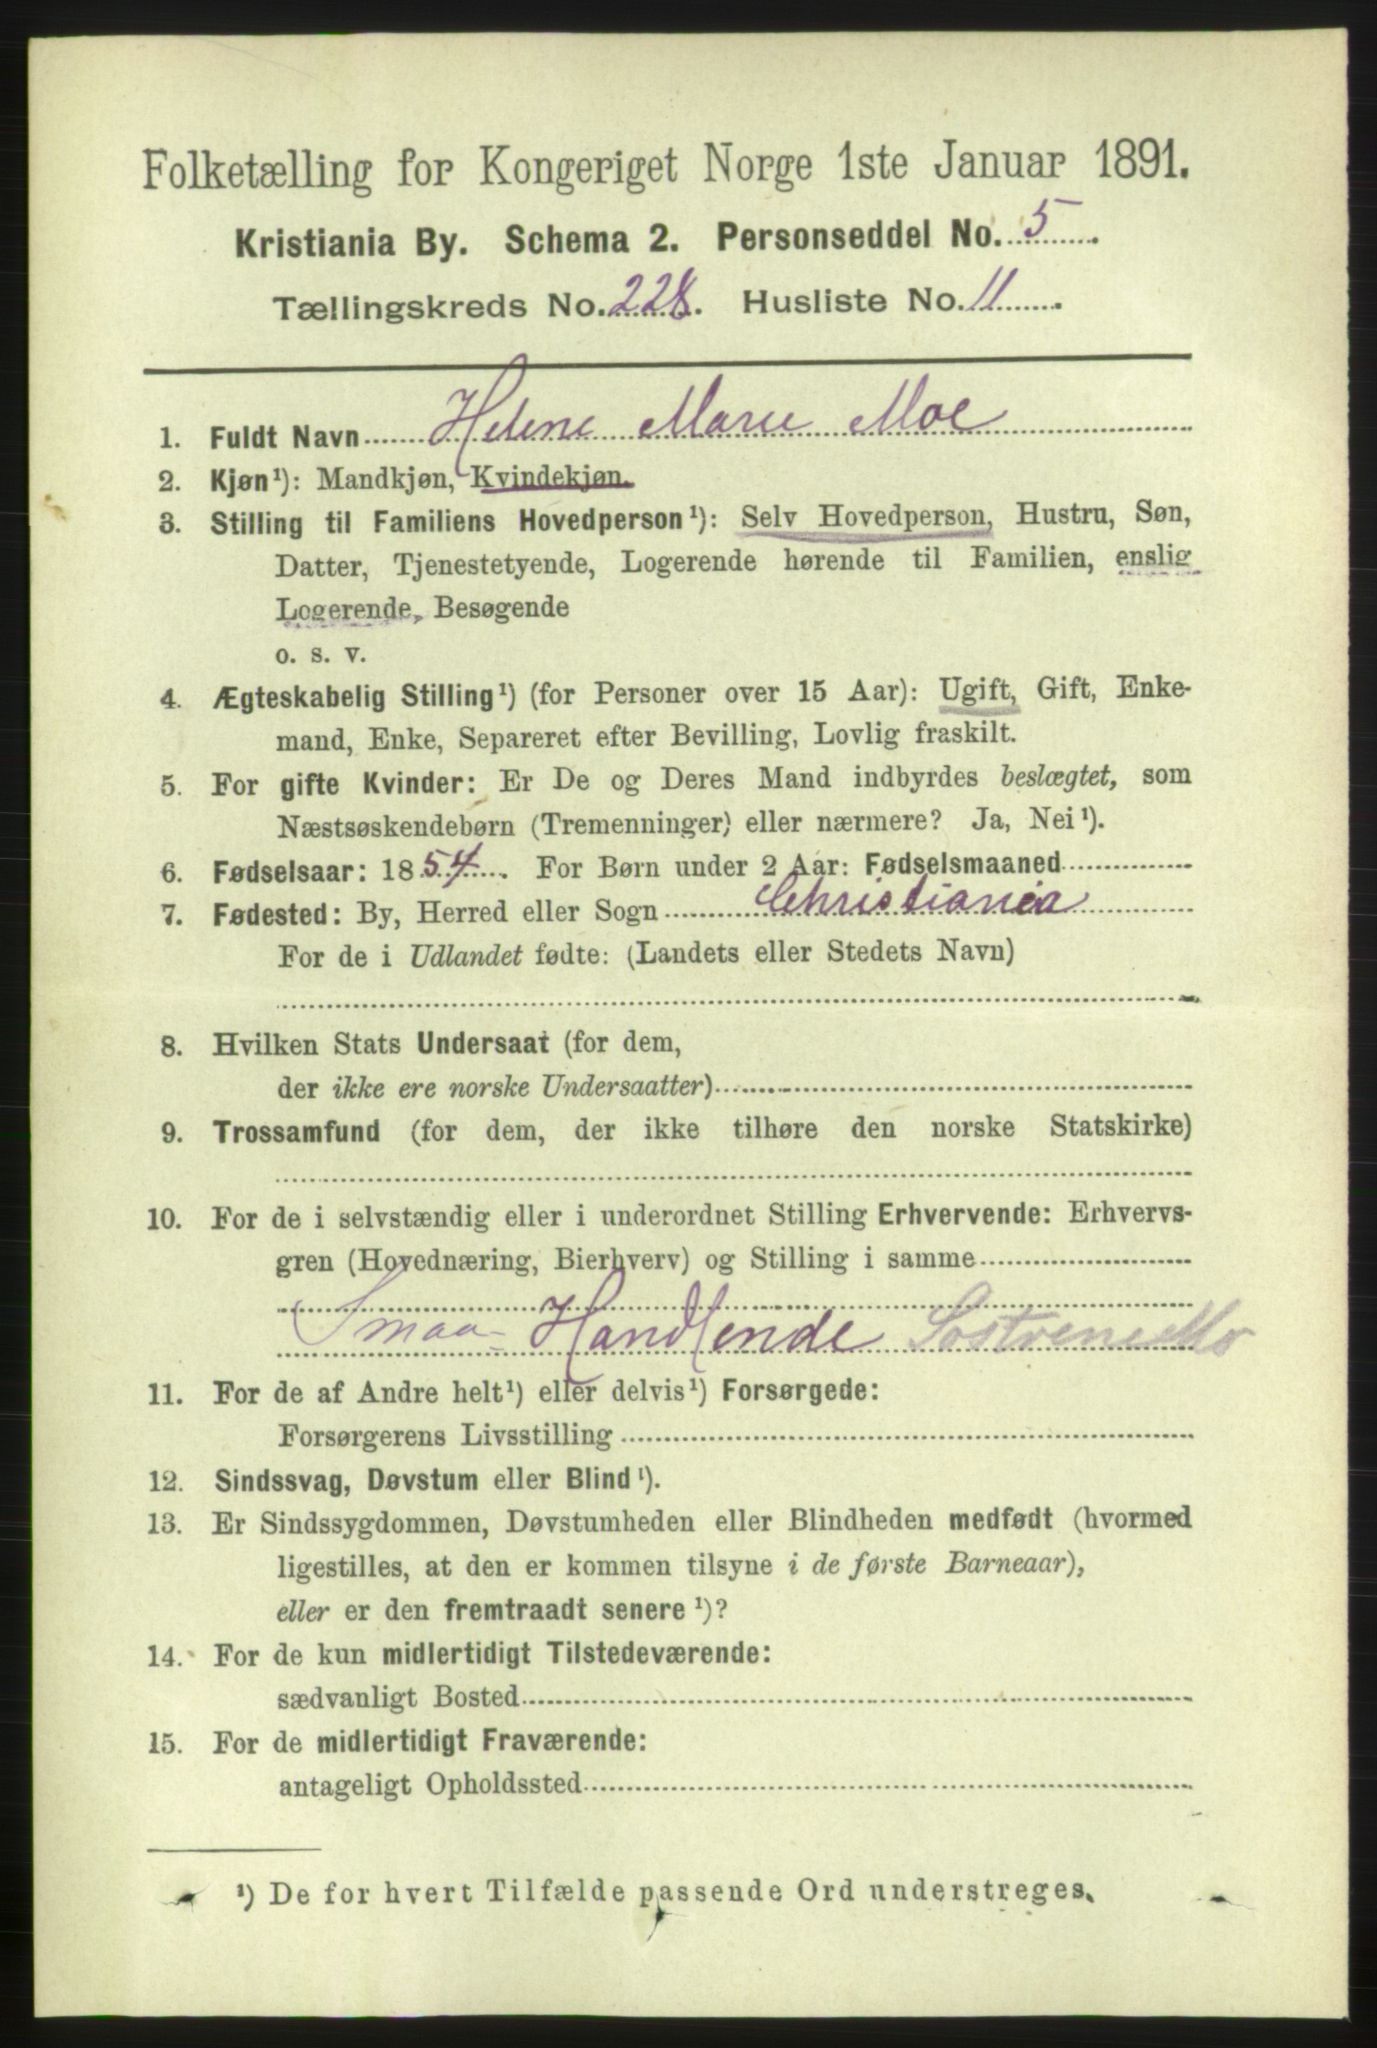 Folketælling for Kongeriget Norge 1ste Januar 1891.
Kristiania By. Schema 2. Personseddel No. 5
Tællingskreds No. 228. Husliste No. 11
1. Fuldt Navn Helene Marie Moe
2. Kjøn¹): Mandkjøn, Kvindekjøn.
3. Stilling til Familiens Hovedperson¹): Selv Hovedperson, Hustru, Søn,
Datter, Tjenestetyende, Logerende hørende til Familien, enslig
Logerende, Besøgende
o. s. v.
4. Ægteskabelig Stilling¹) (for Personer over 15 Aar): Ugift, Gift, Enke-
mand, Enke, Separeret efter Bevilling, Lovlig fraskilt.
5. For gifte Kvinder: Er De og Deres Mand indbyrdes beslægtet, som
Næstsøskendebørn (Tremenninger) eller nærmere? Ja, Nei¹).
6. Fødselsaar: 1854. For Børn under 2 Aar: Fødselsmaaned
7. Fødested: By, Herred eller Sogn Christiania
For de i Udlandet fødte: (Landets eller Stedets Navn)
8. Hvilken Stats Undersaat (for dem,
der ikke ere norske Undersaatter)
9. Trossamfund (for dem, der ikke tilhøre den norske Statskirke)
10. For de i selvstændig eller i underordnet Stilling Erhvervende: Erhvervs-
gren (Hovednæring, Bierhverv) og Stilling i samme
Smaa- Handlende Søstrene Mo
11. For de af Andre helt¹) eller delvis¹) Forsørgede:
Forsørgerens Livsstilling
12. Sindssvag, Døvstum eller Blind¹).
13. Er Sindssygdommen, Døvstumheden eller Blindheden medfødt (hvormed
ligestilles, at den er kommen tilsyne i de første Barneaar),
eller er den fremtraadt senere¹)?
14. For de kun midlertidigt Tilstedeværende:
sædvanligt Bosted
15. For de midlertidigt Fraværende:
antageligt Opholdssted
¹) De for hvert Tilfælde passende Ord understreges.